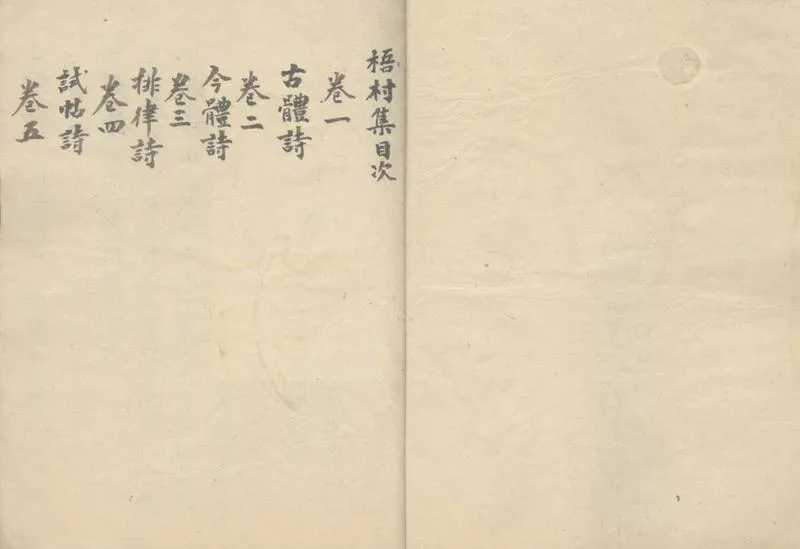 梧村集目次
卷一
古體詩
卷二
今體詩
卷三
排律詩
卷四
試帖詩
卷五